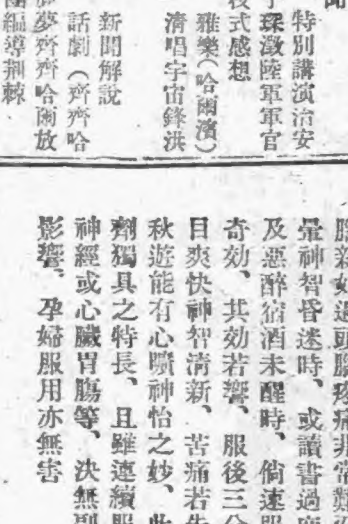 聞
特別講演治安
琛澂陸軍軍官
式感想
雅樂（哈爾濱）
清唱宇宙鋒洪
新聞解說
話劇（齊齊哈
夢齊齊哈爾放
編導荊棘
過頭腦疼痛非常
暈神智昏迷時、或讀書過
及惡醉宿酒未醒時、倘速服
奇効、其効若響、服後三分
目爽快神智清新、苦痛若失
秋遊能有心曠神怡之妙、此
劑獨具之特長、且雖連續服
神經或心臟胃腸等、決無副
影響、孕婦服用亦無害